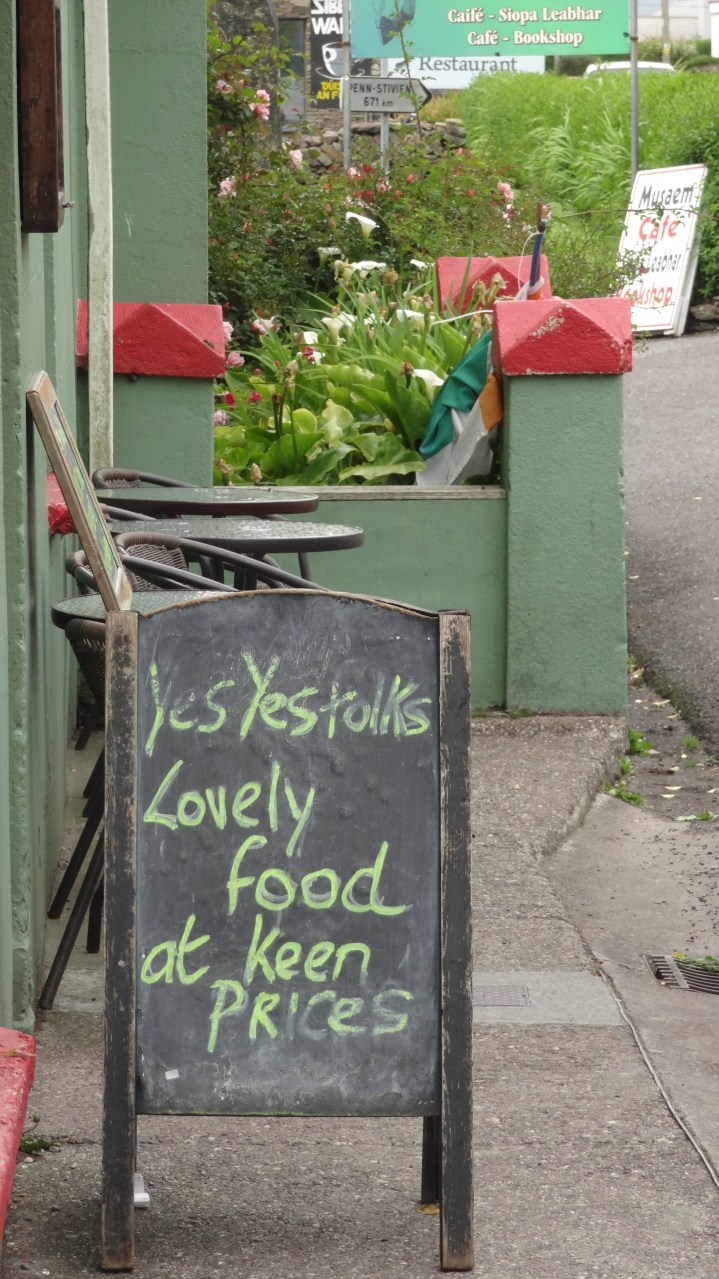 Caifé - Siopa Leabhar
Café - Bookshop
Restaurant
PENN-STIVIEN
671 km
Musaem
Cafe
Leabhar
Bookshop
Yes Yes folks
Lovely
food
at Keen
PRices